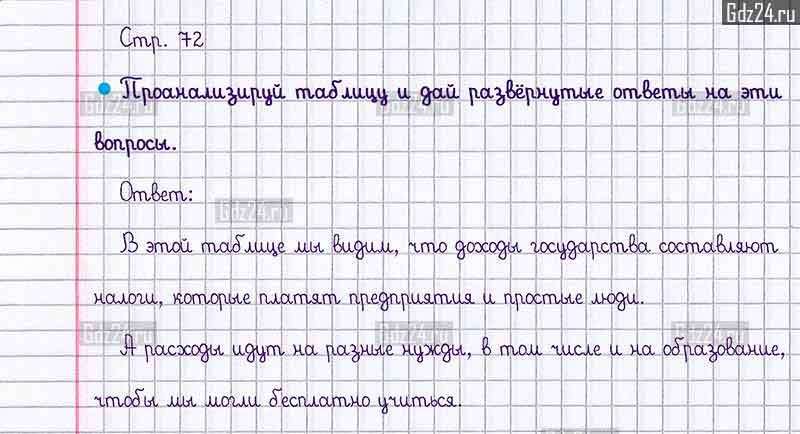 Gdz24.ru
Стр. 72
Проанализируй таблицу и дай развёрнутые ответы на эти
вопросы.
Ответ:
В этой таблице мы видим, что доходы государства составляют
налоги, которые платят предприятия и простые люди.
А расходы идут на разные нужды, в том числе и на образование,
чтобы мы могли бесплатно учиться.